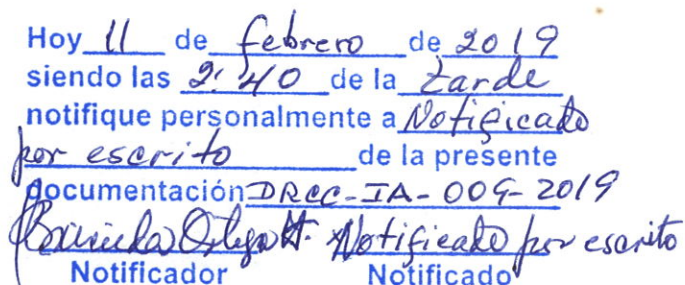 Hoy 11 de febrero de 2019
siendo las 2:40 de la tarde
notifique personalmente a Notificado
por escrito de la presente
documentación DRCC-IA-009-2019
Ortega H. Notificado por escrito
Notificador Notificado